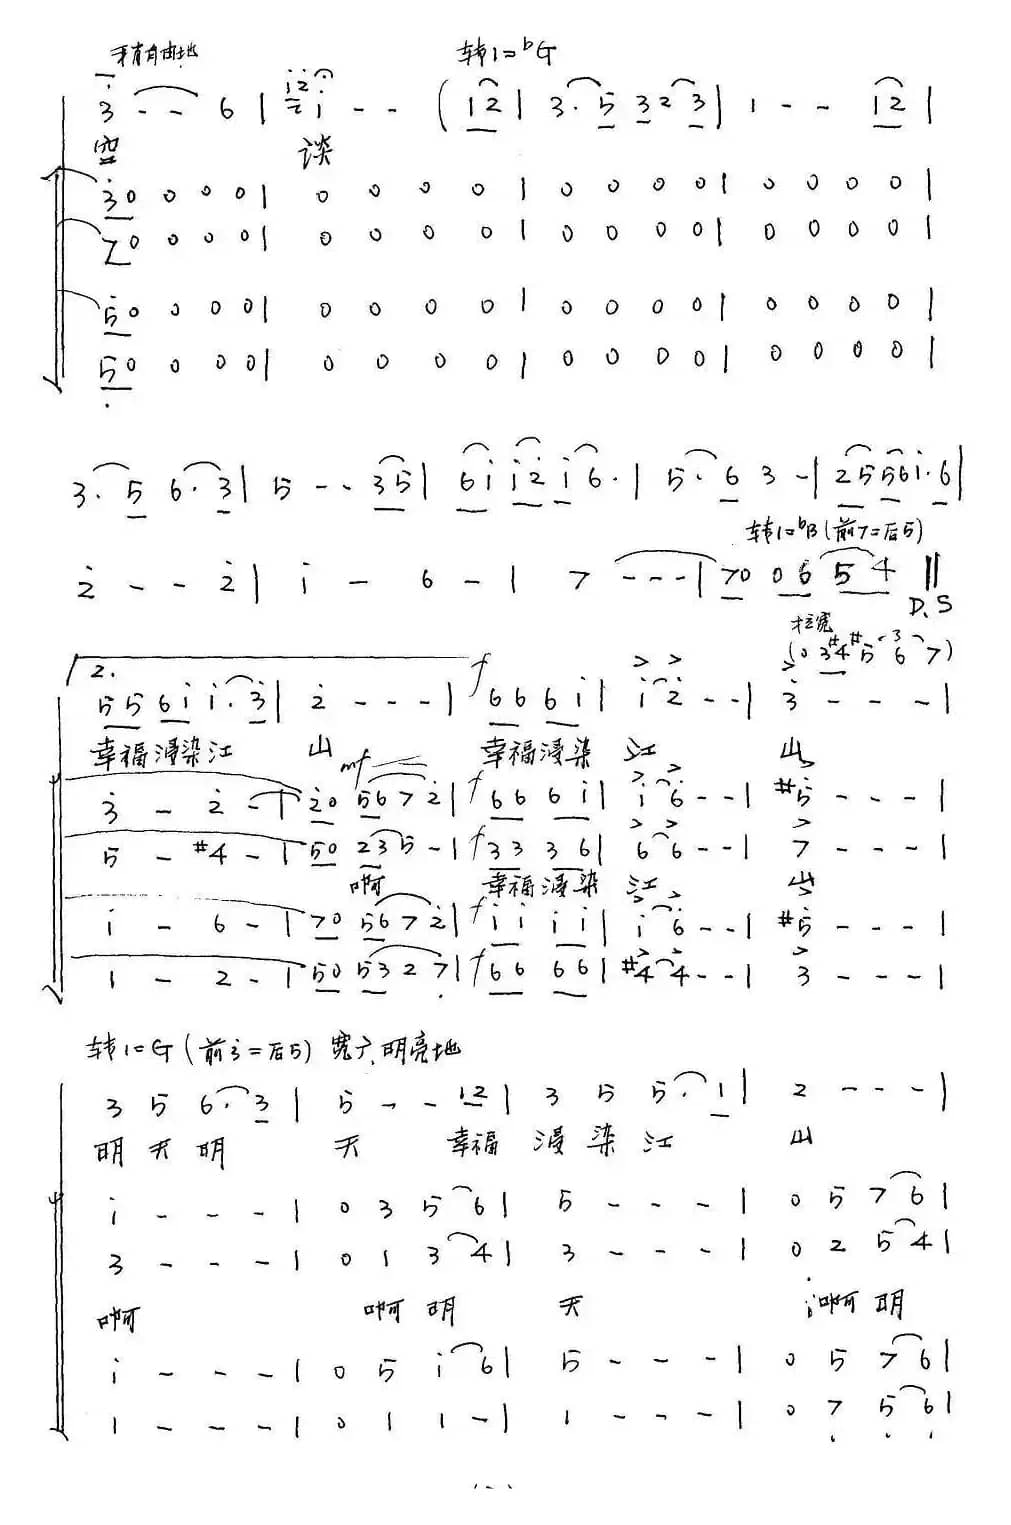 稍自由地 转1=ᵇG
3 - - 6 | i - - ( 1 2 | 3. 5 3 2 3 | 1 - - 1 2 |
空 谈
3 0 0 0 0 | 0 0 0 0 | 0 0 0 0 | 0 0 0 0 |
7 0 0 0 0 | 0 0 0 0 | 0 0 0 0 | 0 0 0 0 |
5 0 0 0 0 | 0 0 0 0 | 0 0 0 0 | 0 0 0 0 |
5 0 0 0 0 | 0 0 0 0 | 0 0 0 0 | 0 0 0 0 |
3. 5 6. 3 | 5 - - 3 5 | 6 i i 2 i 6. | 5. 6 3 - | 2 5 5 6 i. 6 |
转1=ᵇB (前7=后5)
2 - - 2 | i - 6 - | 7 - - - | 7 0 0 6 5 4 ‖
D.S
拉宽
(0 3 #4 #5 6 7)
2.
5 5 6 i i. 3 | 2 - - - | f 6 6 6 i | i 2 - - | 3 - - - |
幸福浸染江 山 幸福浸染 江 山
mf
3 - 2 - | 2 0 5 6 7 2 | f 6 6 6 i | i 6 - - | #5 - - - |
5 - #4 - | 5 0 2 3 5 - | f 3 3 3 6 | 6 6 - - | 7 - - - |
啊 幸福浸染 江 山
i - 6 - | 7 0 5 6 7 2 | f i i i i | i 6 - - | #5 - - - |
1 - 2 - | 5 0 5 3 2 7 | f 6 6 6 6 | #4 4 - - | 3 - - - |
转1=G (前3=后5) 宽广、明亮地
3 5 6. 3 | 5 - - 1 2 | 3 5 5. 1 | 2 - - - |
明天明 天 幸福 浸染江 山
i - - - | 0 3 5 6 | 5 - - - | 0 5 7 6 |
3 - - - | 0 1 3 4 | 3 - - - | 0 2 5 4 |
啊 啊明 天 啊明
i - - - | 0 5 i 6 | 5 - - - | 0 5 7 6 |
1 - - - | 0 1 1 - | 1 - - - | 0 7 5 6 |